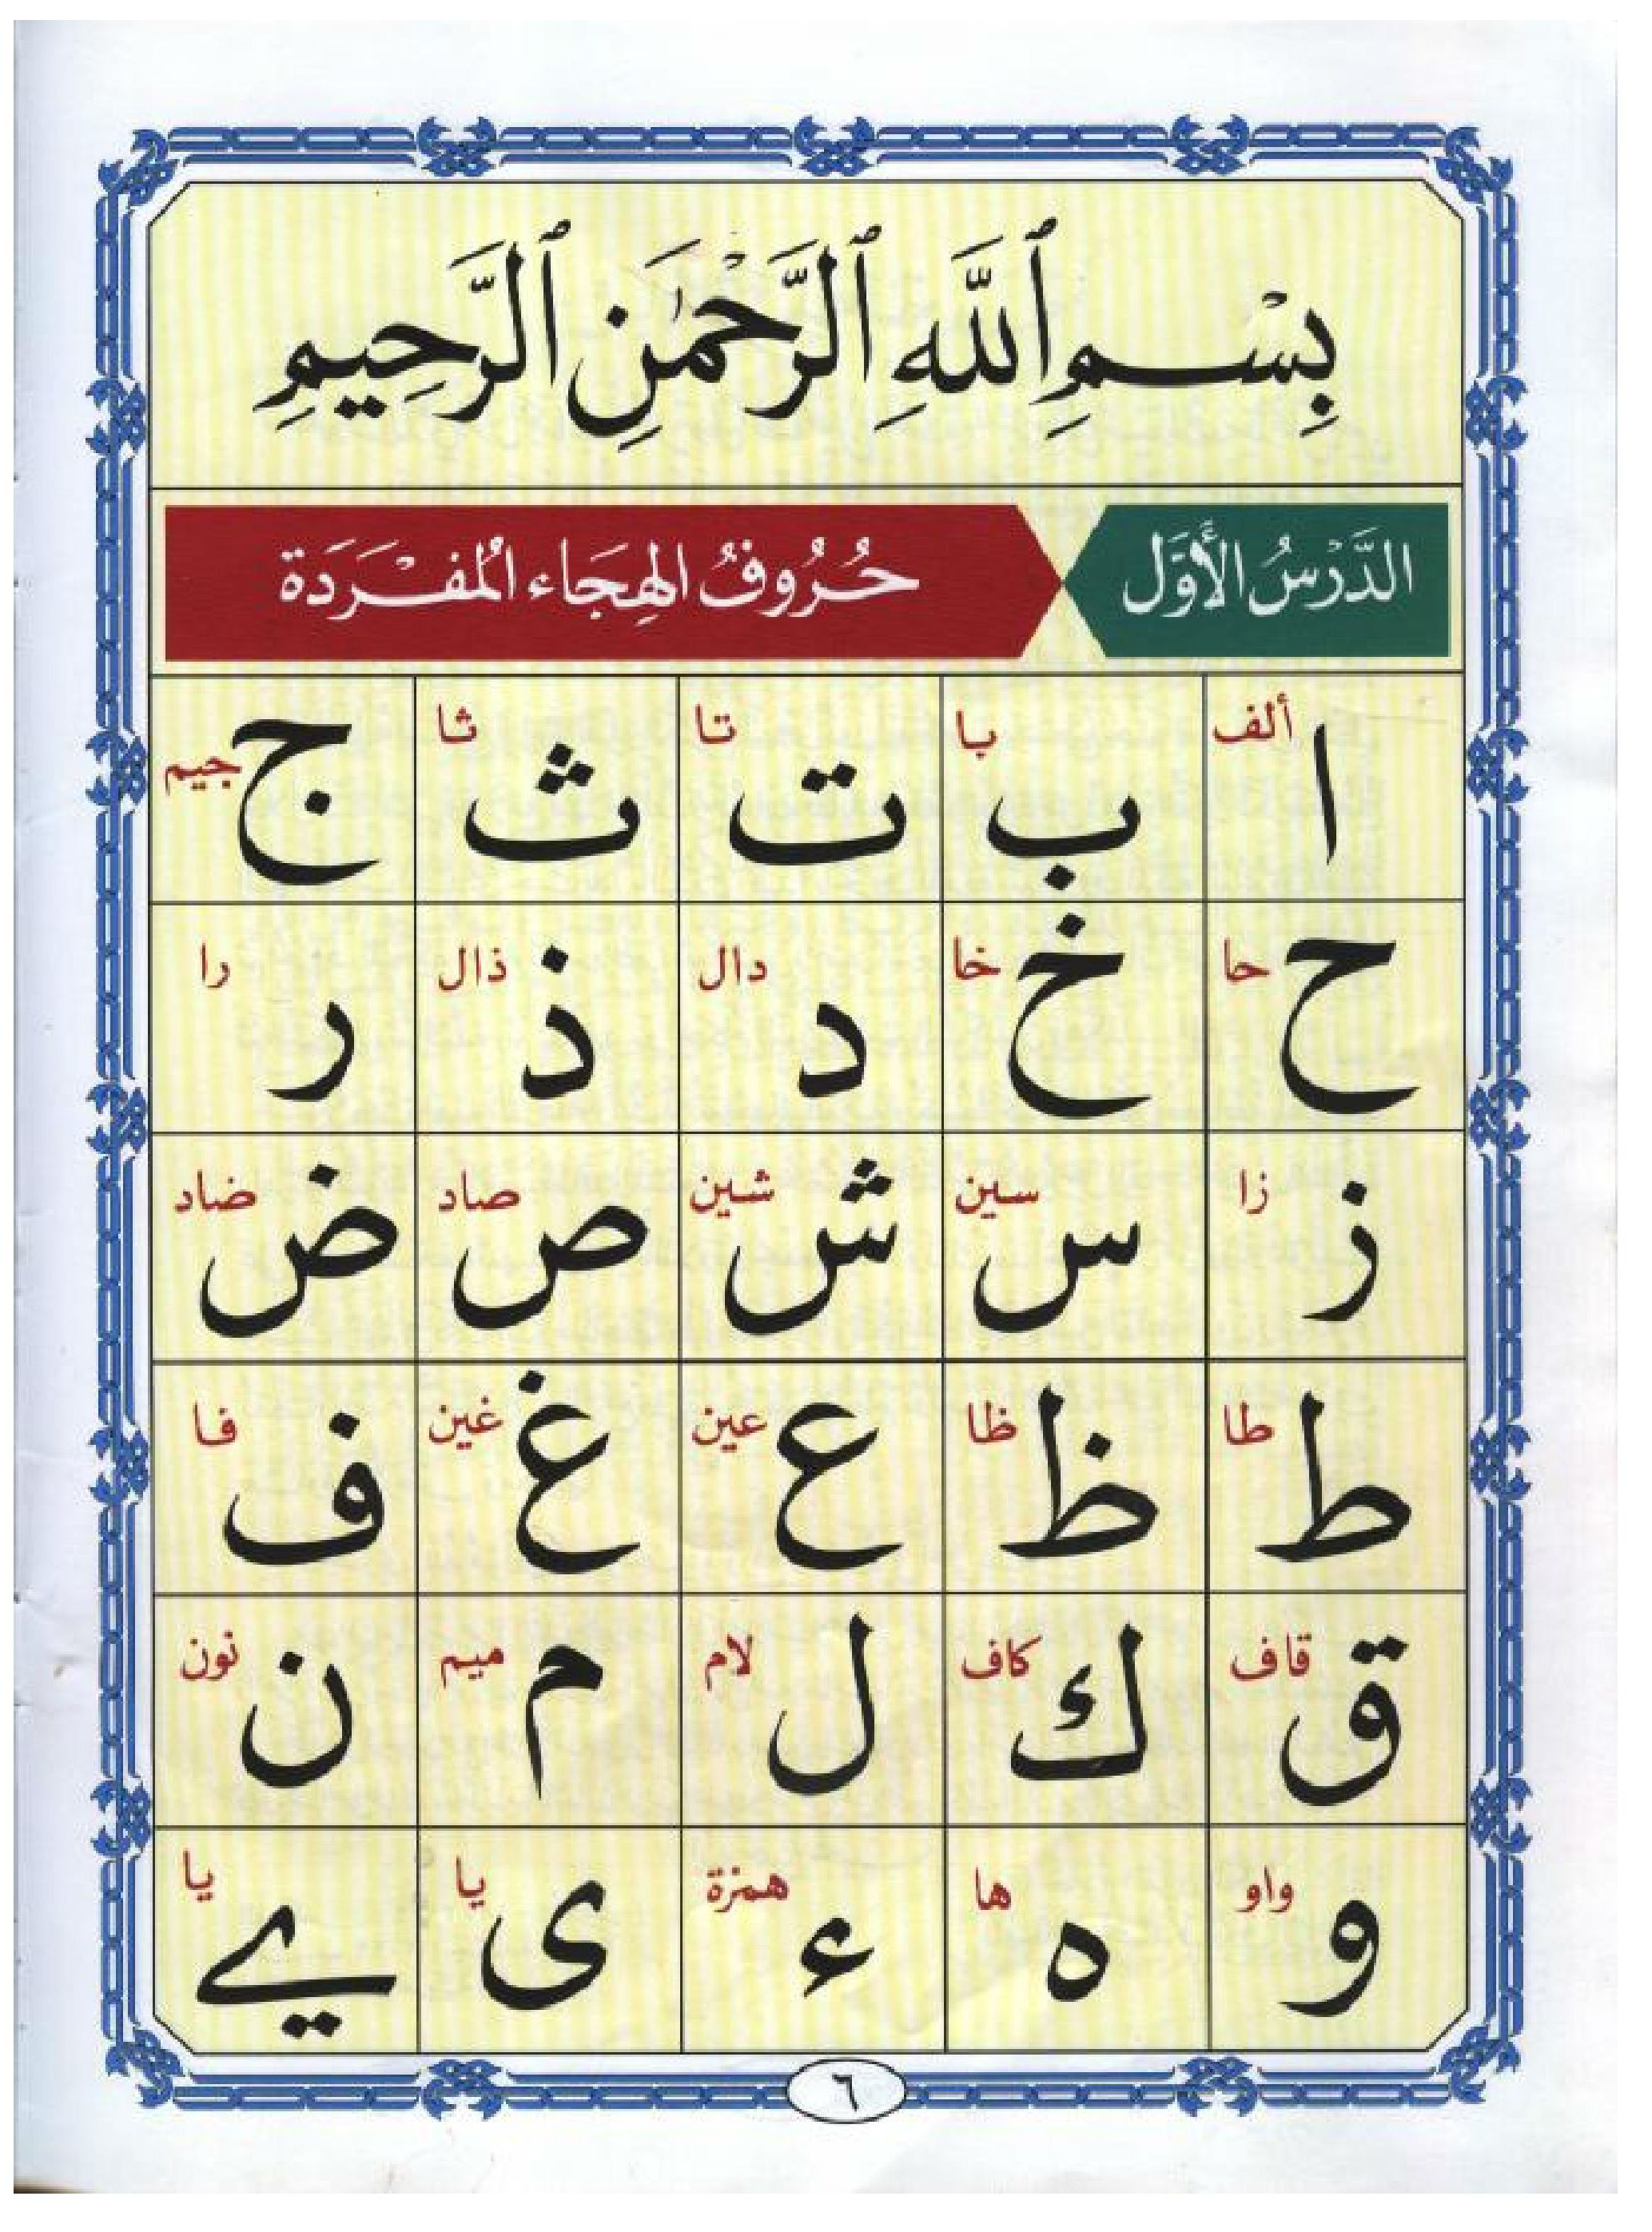 بِسْمِ ٱللَّهِ ٱلرَّحْمَٰنِ ٱلرَّحِيمِ
الدَّرْسُ الأَوَّل حُرُوفُ الهِجَاء المُفْرَدَة
ا ألف ب با ت تا ث ثا ج جيم
ح حا خ خا د دال ذ ذال ر را
ز زا س سين ش شين ص صاد ض ضاد
ط طا ظ ظا ع عين غ غين ف فا
ق قاف ك كاف ل لام م ميم ن نون
و واو ه ها ء همزة ى يا ے يا
٦